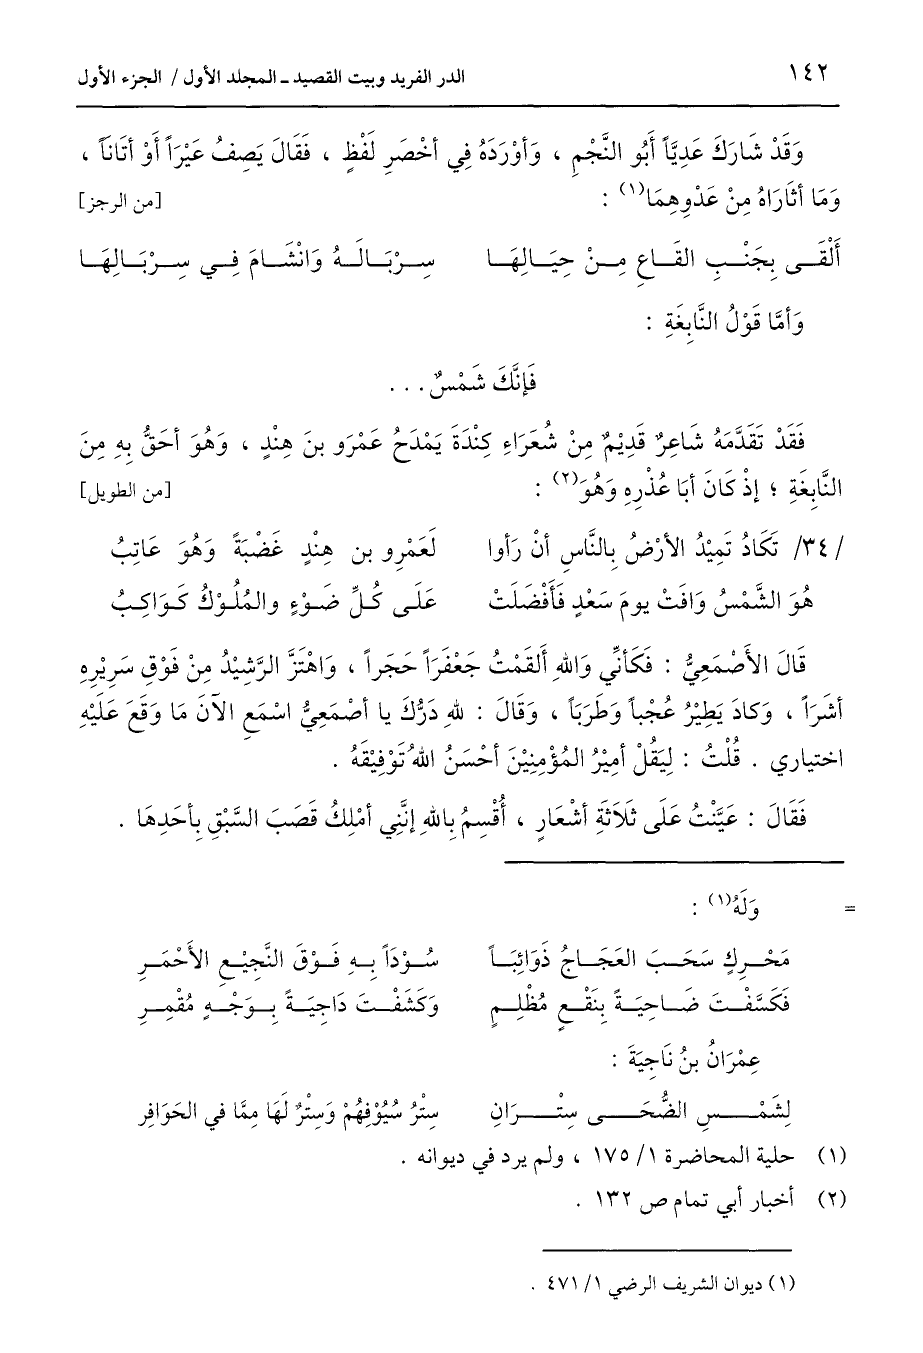 ١٤٢ الدر الفريد وبيت القصيد ـ المجلد الأول / الجزء الأول
وَقَدْ شَارَكَ عَدِيَّاً أَبُو النَّجْمِ ، وَأوْرَدَهُ فِي أخْصَرِ لَفْظٍ ، فَقَالَ يَصِفُ عَيْرَاً أَوْ أتَانَاً ،
وَمَا أثَارَاهُ مِنْ عَدْوِهِمَا(١) : [من الرجز]
أَلْقَـى بِجَنْـبِ القَـاعِ مِـنْ حِيَـالِهَـا سِـرْبَـالَـهُ وَانْشَـامَ فِـي سِـرْبَـالِهَـا
وَأمَّا قَوْلُ النَّابِغَةِ :
فَإنَّكَ شَمْسٌ. . .
فَقَدْ تَقَدَّمَهُ شَاعِرٌ قَدِيْمٌ مِنْ شُعَرَاءِ كِنْدَةَ يَمْدَحُ عَمْرَو بنَ هِنْدٍ ، وَهُوَ أحَقُّ بِهِ مِنَ
النَّابِغَةِ ؛ إذْ كَانَ أبَا عُذْرِهِ وَهُوَ(٢) : [من الطويل]
/٣٤/ تَكَادُ تَمِيْدُ الأرْضُ بِالنَّاسِ أنْ رَأوا لَعَمْرِو بن هِنْدٍ غَضْبَةً وَهُوَ عَاتِبُ
هُوَ الشَّمْسُ وَافَتْ يومَ سَعْدٍ فَأَفْضَلَتْ عَلَـى كُـلِّ ضَـوْءٍ والمُلُـوْكُ كَـوَاكِـبُ
قَالَ الأَصْمَعِيُّ : فَكَأنِّي وَاللهِ أَلقَمْتُ جَعْفَرَاً حَجَراً ، وَاهْتَزَّ الرَّشِيْدُ مِنْ فَوْقِ سَرِيْرِهِ
أشَرَاً ، وَكادَ يَطِيْرُ عُجْباً وَطَرَبَاً ، وَقَالَ : للهِ دَرُّكَ يا أصْمَعِيُّ اسْمَعِ الآنَ مَا وَقَعَ عَلَيْهِ
اختياري . قُلْتُ : لِيَقُلْ أمِيْرُ المُؤْمِنِيْنَ أحْسَنُ اللهُ تَوْفِيْقَهُ .
فَقَالَ : عَيَّنْتُ عَلَى ثَلَاثَةِ أشْعَارٍ ، أُقْسِمُ بِاللهِ إنَّنِي أمْلِكُ قَصَبَ السَّبْقِ بِأحَدِهَا .
= وَلَهُ(١) :
مَجْـرِكٍ سَحَـبَ العَجَـاجُ ذَوَائِبَـاً سُـوْدَاً بِـهِ فَـوْقَ النَّجِيْـعِ الأَحْمَـرِ
فَكَسَّفْـتَ ضَـاحِيَـةً بِنَقْـعٍ مُظْلِـمٍ وَكَشَفْـتَ دَاجِيَـةً بِـوَجْـهٍ مُقْمِـرِ
عِمْرَانُ بنُ نَاجِيَةَ :
لِشَمْـسِ الضُّحَـى سِتْـرَانِ سِتْرُ سُيُوْفِهُمْ وَسِتْرٌ لَهَا مِمَّا في الحَوَافِرِ
(١) حلية المحاضرة ١/ ١٧٥ ، ولم يرد في ديوانه .
(٢) أخبار أبي تمام ص ١٣٢ .
(١) ديوان الشريف الرضي ١/ ٤٧١ .